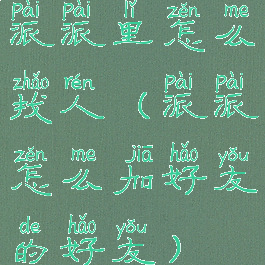 pài pài lǐ zěn me
派派里怎么
zhǎo rén pài pài
找人(派派
zěn me jiā hǎo yǒu
怎么加好友
de hǎo yǒu
的好友)